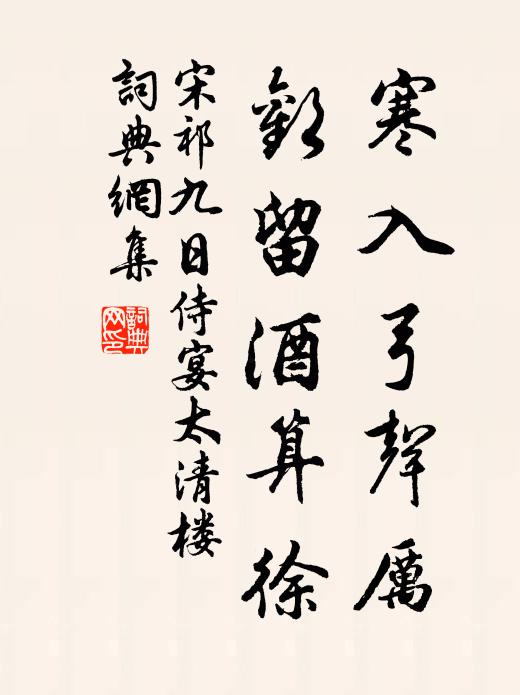 寒入弓聲厲
歡留酒算徐
宋祁九日侍宴太清楼
詞典網集
詞典
网印